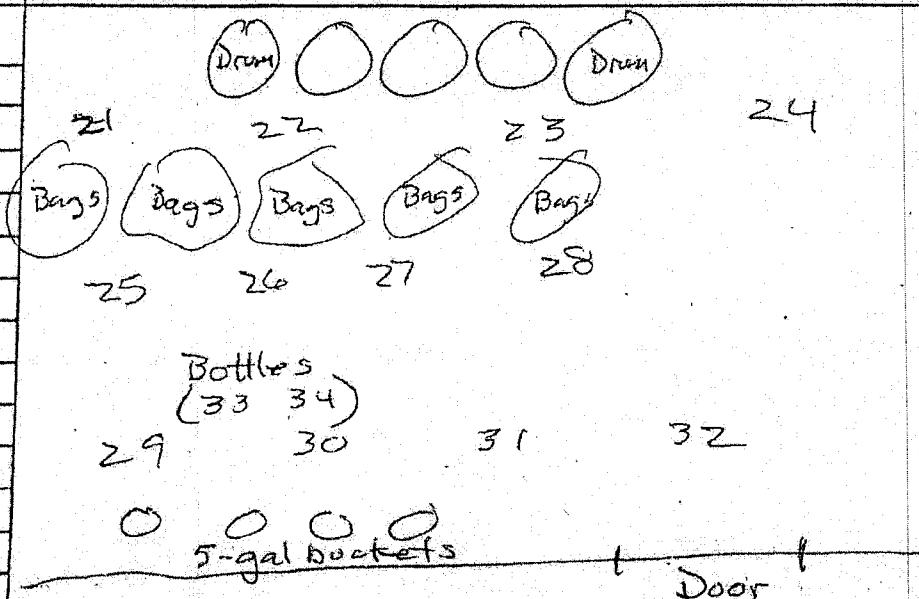 Drum Drum
21 22 23 24
Bags Bags Bags Bags Bags
25 26 27 28
Bottles
(33 34)
29 30 31 32
5-gal buckets
Door